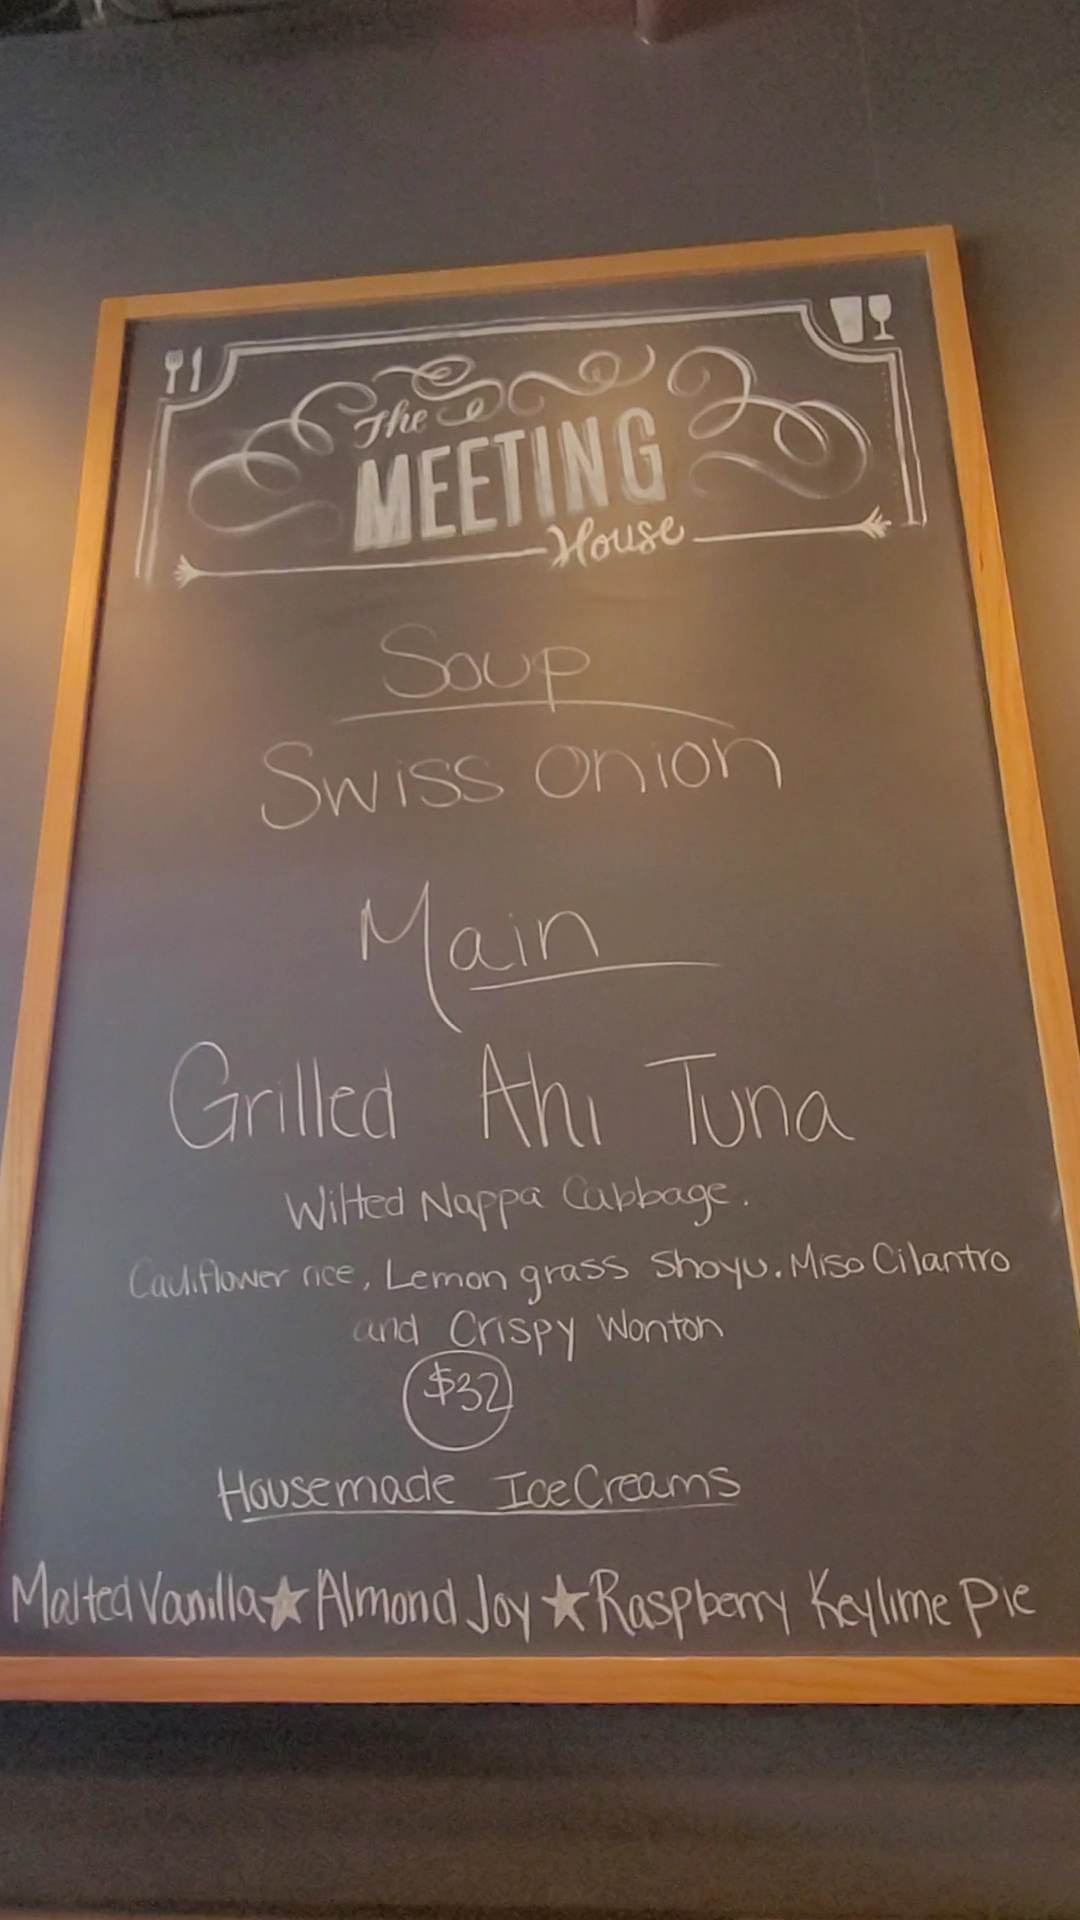 The
MEETING
House
Soup
Swiss onion
Main
Grilled Ahi Tuna
Wilted Nappa Cabbage.
Cauliflower rice, Lemon grass Shoyu. Miso Cilantro
and Crispy Wonton
$32
Housemade Ice Creams
Malted Vanilla★Almond Joy★Raspberry Keylime Pie